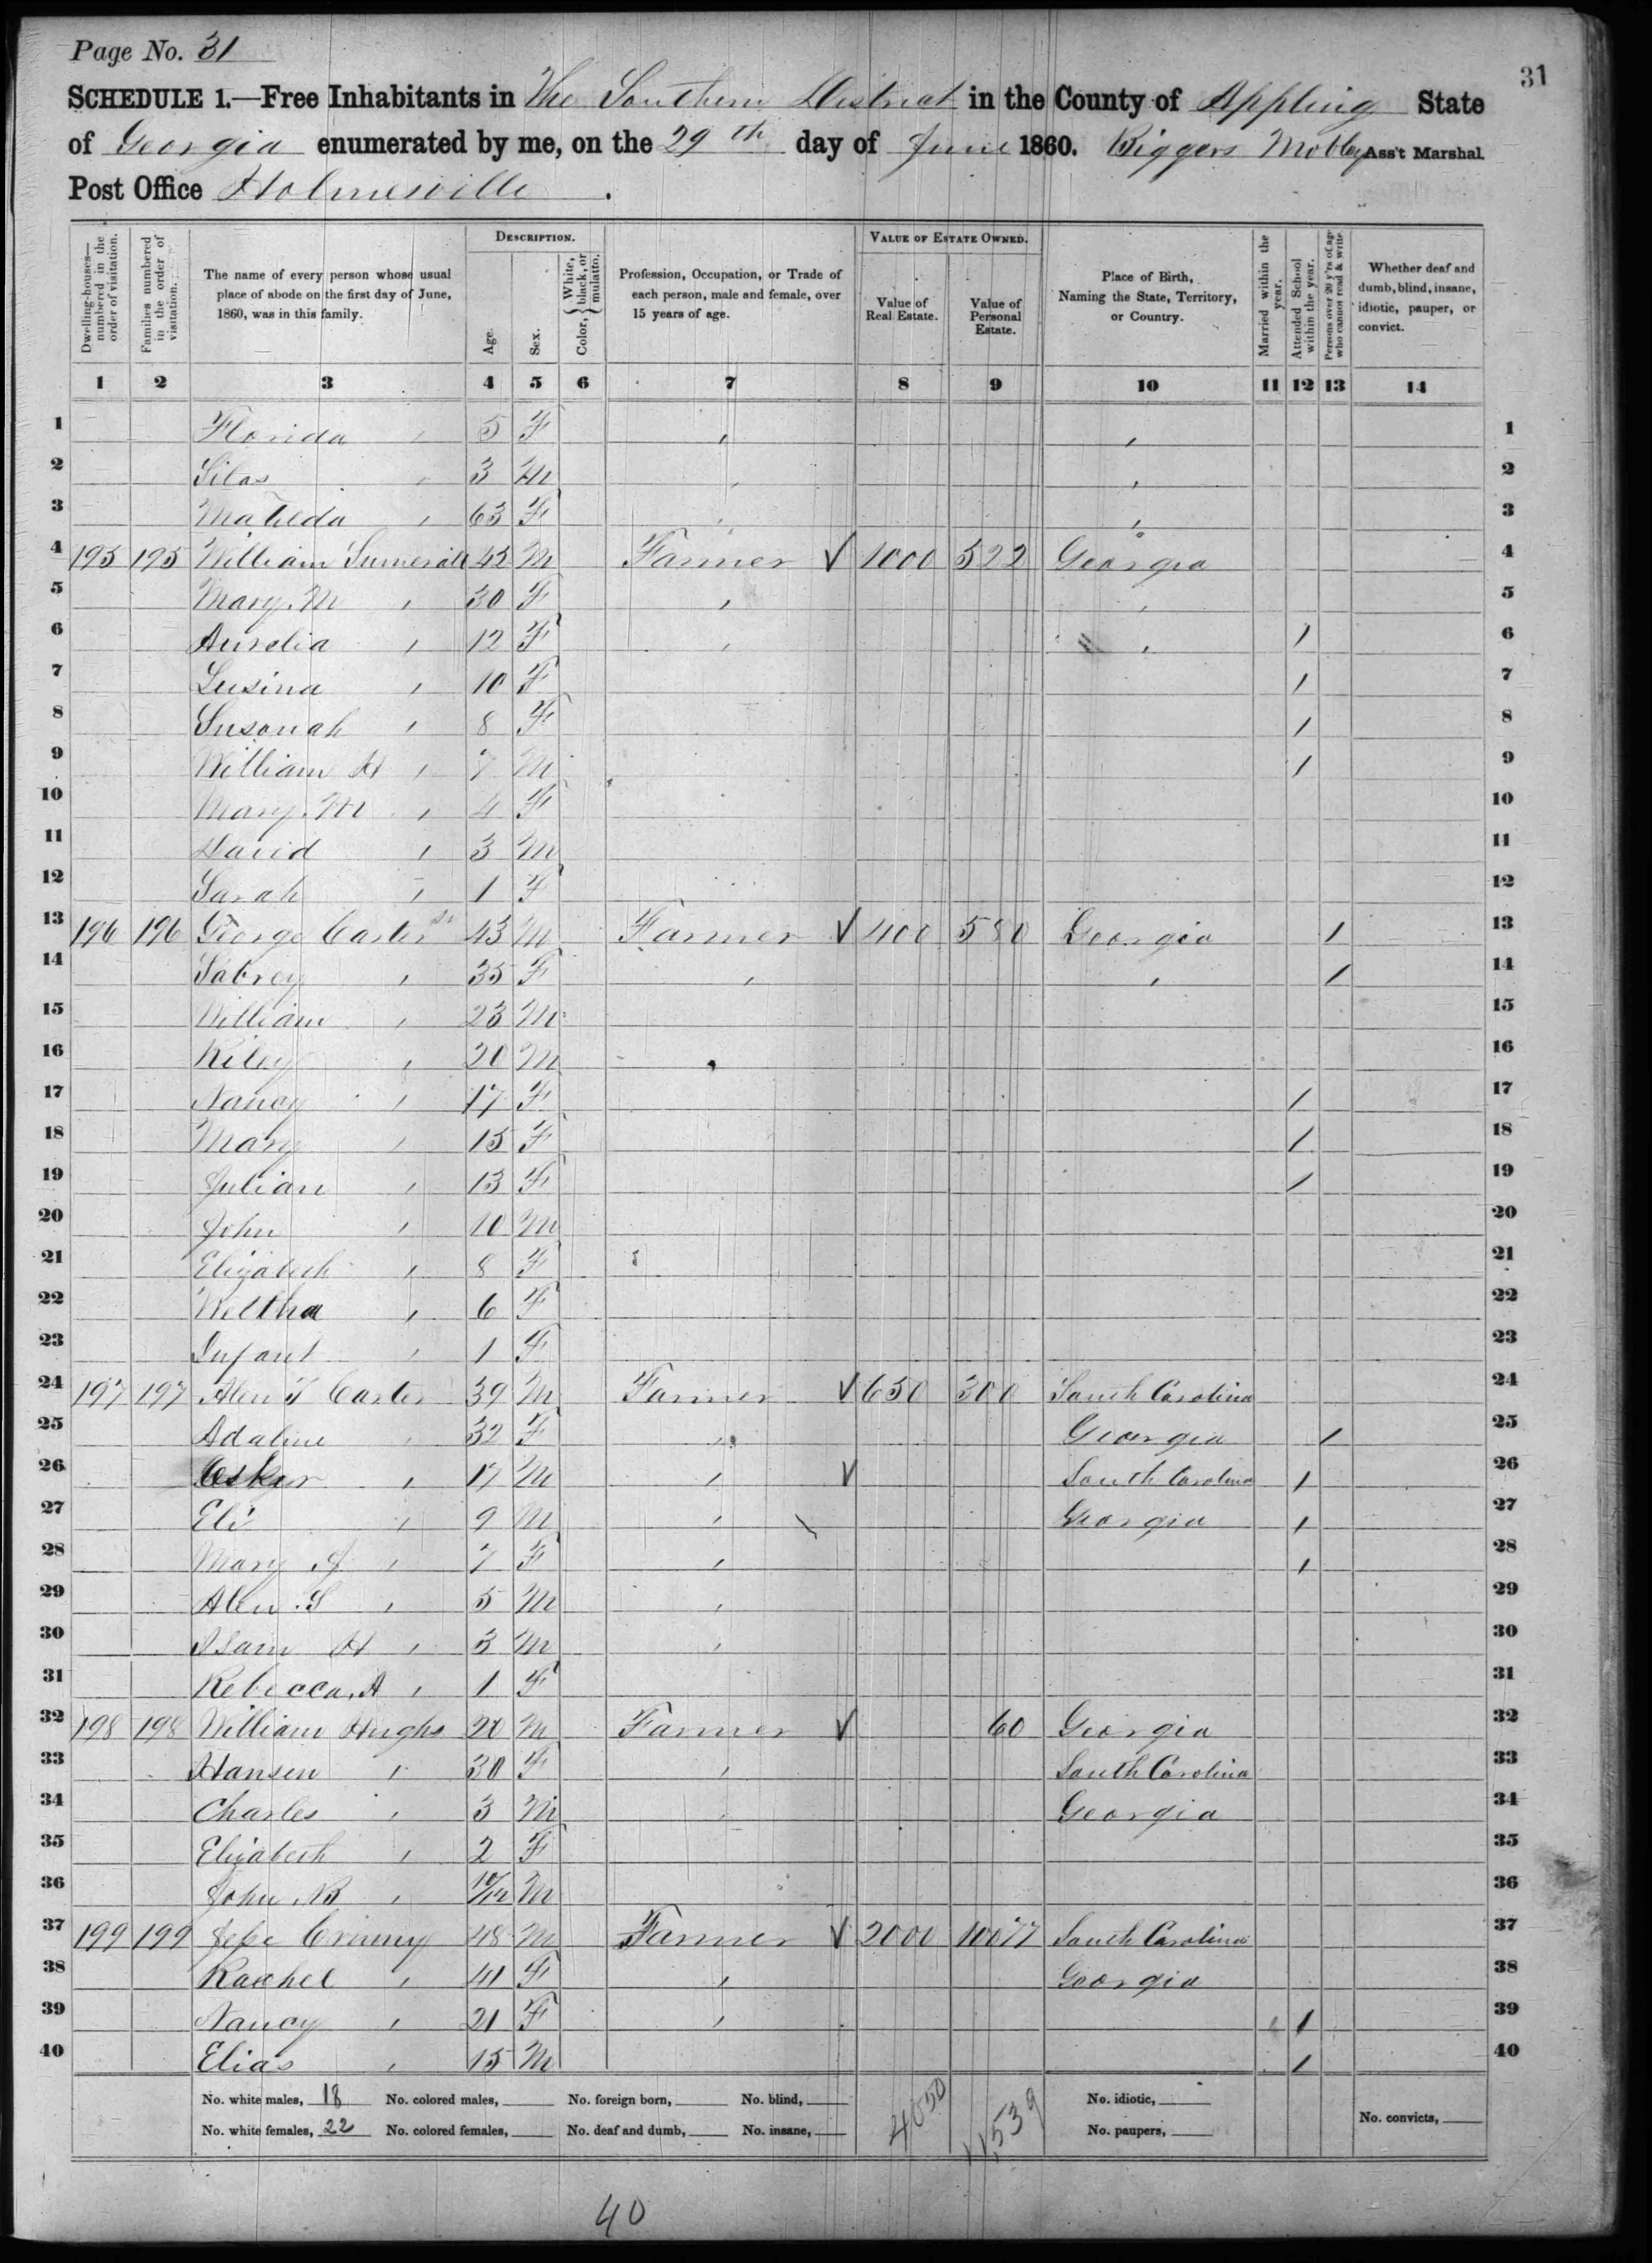 Page No. 31
31
SCHEDULE 1.—Free Inhabitants in The Southern District in the County of Appling State
of Georgia enumerated by me, on the 29th day of June 1860. Biggers Mobley Ass't Marshal.
Post Office Holmesville.
Dwelling-houses—numbered in the order of visitation.
Families numbered in the order of visitation.
The name of every person whose usual place of abode on the first day of June, 1860, was in this family.
DESCRIPTION.
Age.
Sex.
Color, { White, black, or mulatto.
Profession, Occupation, or Trade of each person, male and female, over 15 years of age.
VALUE OF ESTATE OWNED.
Value of Real Estate.
Value of Personal Estate.
Place of Birth, Naming the State, Territory, or Country.
Married within the year.
Attended School within the year.
Persons over 20 y'rs of age who cannot read & write.
Whether deaf and dumb, blind, insane, idiotic, pauper, or convict.
1 2 3 4 5 6 7 8 9 10 11 12 13 14
1 Florida " 5 F " " 1
2 Silas " 3 M " " 2
3 Matilda " 63 F " " 3
4 195 195 William Sumerall 42 M Farmer √ 1000 522 Georgia 4
5 Mary. M " 30 F " " 5
6 Aurelia " 12 F " " / 6
7 Lusina " 10 F / 7
8 Susanah " 8 F / 8
9 William H " 7 M / 9
10 Mary. M " 4 F 10
11 David " 3 M 11
12 Sarah " 1 F 12
13 196 196 George Carter Sr 43 M Farmer √ 400 580 Georgia / 13
14 Sabrey " 35 F " " / 14
15 William " 23 M 15
16 Riley " 20 M 16
17 Nancy " 17 F / 17
18 Mary " 15 F / 18
19 Julian " 13 F / 19
20 John " 10 M 20
21 Elizabeth " 8 F 21
22 Weltha " 6 F 22
23 Infant " 1 F 23
24 197 197 Alen T Carter 39 M Farmer √ 650 300 South Carolina 24
25 Adaline " 32 F " Georgia / 25
26 Osker " 17 M " √ South Carolina / 26
27 Eli " 9 M " \ Georgia / 27
28 Mary J " 7 F " / 28
29 Alen. S " 5 M " 29
30 Isam H " 3 M " 30
31 Rebecca. A " 1 F 31
32 198 198 William Hughs 20 M Farmer √ 60 Georgia 32
33 Hansen " 30 F " South Carolina 33
34 Charles " 3 M " Georgia 34
35 Elizabeth " 2 F 35
36 John. B " 10/12 M 36
37 199 199 Jepe Crumy 48 M Farmer √ 2000 10077 South Carolina 37
38 Rachel " 41 F " Georgia 38
39 Nancy " 21 F " / 39
40 Elias " 15 M / 40
No. white males, 18 No. colored males, No. foreign born, No. blind, 4050 11,539 No. idiotic,
No. white females, 22 No. colored females, No. deaf and dumb, No. insane, No. paupers, No. convicts,
40